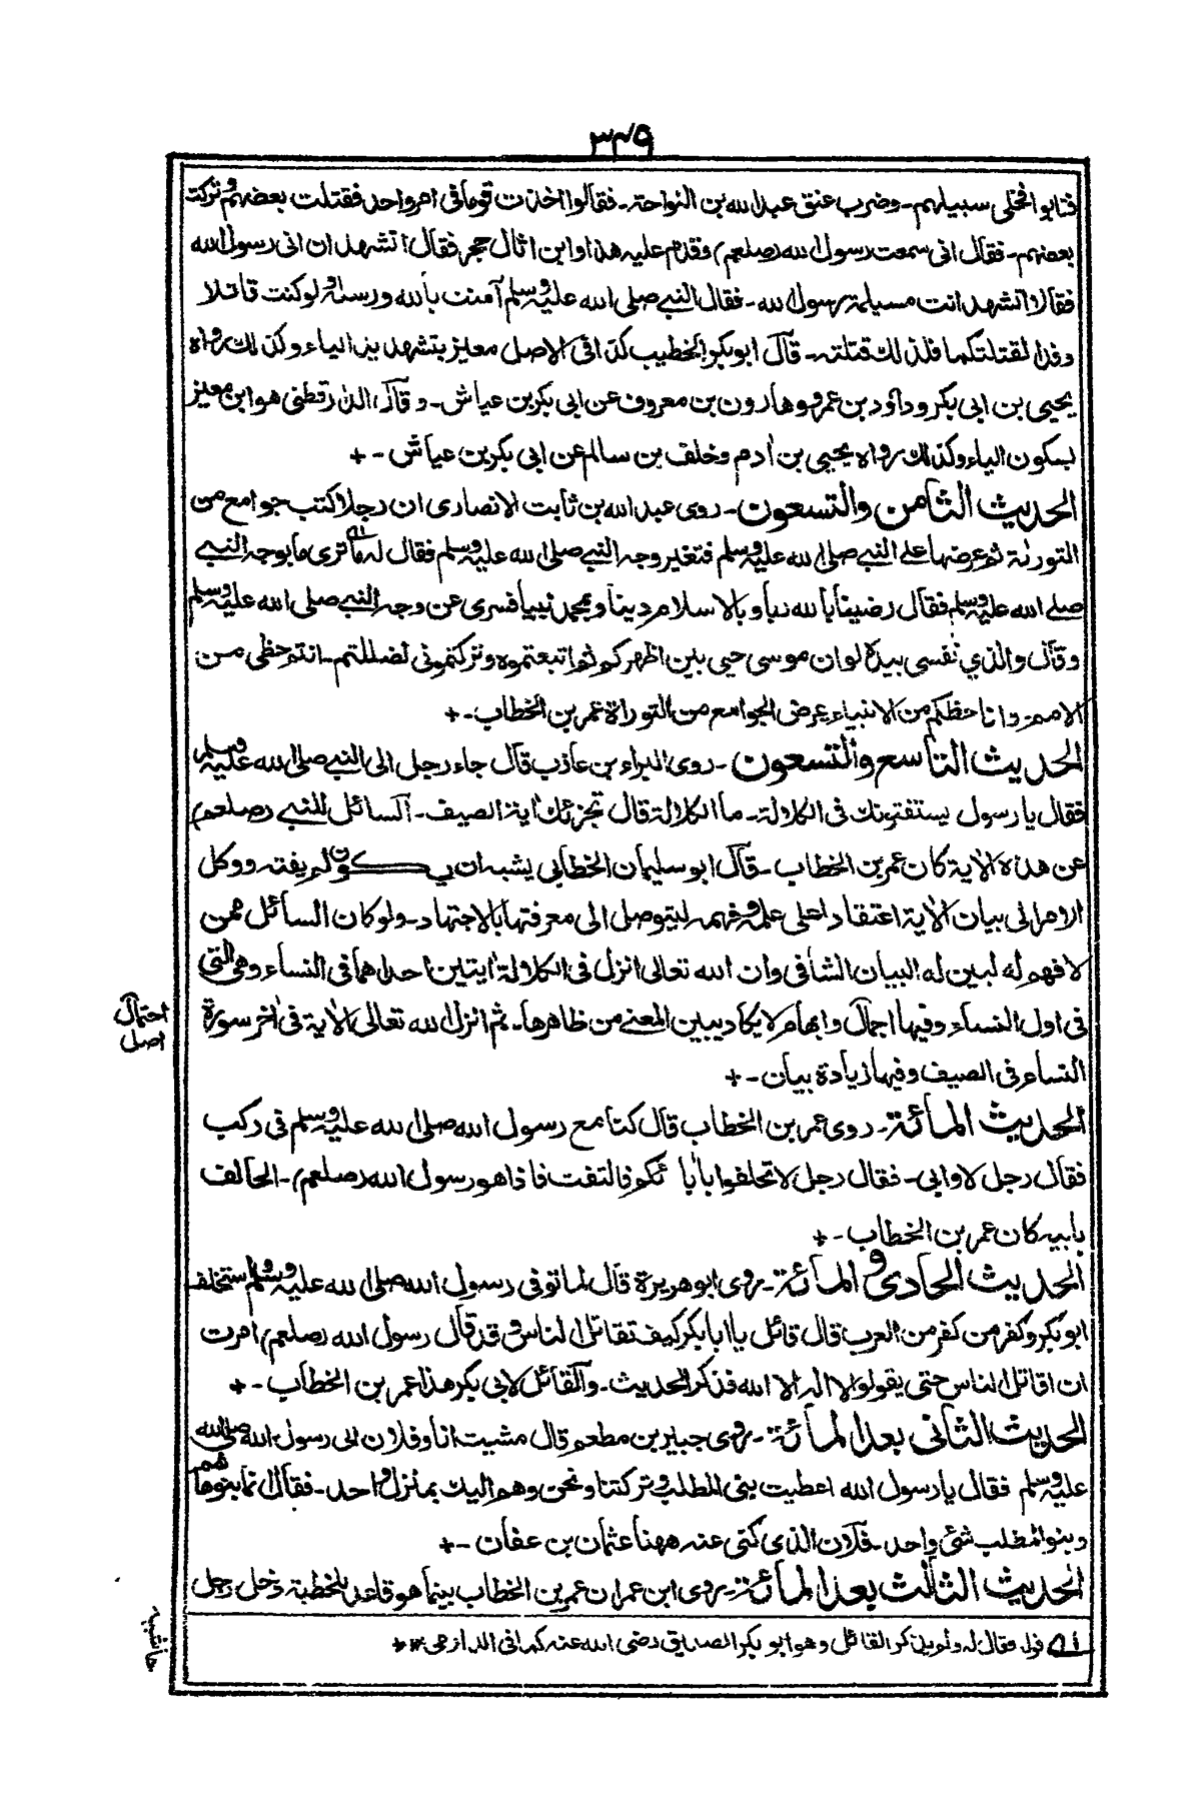 ٣٤٩
فتابوا فخلى سبيلهم - وضرب عنق عبد الله بن النواحة - فقالوا اخذت قوما فى امر واحد فقتلت بعضهم وتركت
بعضهم - فقال انى سمعت رسول الله (صلعم) وقدم عليه هذا وابن اثال حجر فقال اتشهدان انى رسول الله
فقالا اتشهد انت مسيلمة رسول الله - فقال النبى صلى الله عليه وسلم آمنت بالله ورسله ولو كنت قاتلا
وفدا لقتلتكما فلذلك قتلته - قال ابوبكر الخطيب كذا فى الاصل معيز بتشهديد الياء وكذلك رواه
يحيى بن ابى بكر وداؤد بن عمرو وهارون بن معروف عن ابى بكر بن عياش - وقال الدارقطنى هو ابن معيز
بسكون الياء وكذلك رواه يحيى بن ادم وخلف بن سالم عن ابى بكر بن عياش - +
الحديث الثامن والتسعون - روى عبد الله بن ثابت الانصارى ان رجلا كتب جوامع من
التورٰة ثم عرضها على النبى صلى الله عليه وسلم فتغير وجه النبى صلى الله عليه وسلم فقال له اما ترى ما بوجه النبى
صلى الله عليه وسلم فقال رضينا بالله ربا وبالاسلام دينا وبمحمد نبيا فسرى عن وجه النبى صلى الله عليه وسلم
وقال والذي نفسى بيده لو ان موسى حيى بين اظهركم ثم اتبعتموه وتركتمونى لضللتم - انتم حظى من
الامم وانا حظكم من الانبياء عرض الجوامع من التوراة عمر بن الخطاب - +
الحديث التاسع والتسعون - روى البراء بن عاذب قال جاء رجل الى النبى صلى الله عليه وسلم
فقال يا رسول يستفتونك فى الكلالة - ما الكلالة قال تجزئك اية الصيف - السائل للنبى (صلعم)
عن هذه الاية كان عمر بن الخطاب - قال ابو سليمان الخطابى يشبه ان يكون لم يفته ووكل
الامر الى بيان الاية اعتقادا على علمه وفهمه ليتوصل الى معرفتها بالاجتهاد - ولو كان السائل ممن
لا فهم له لبين له البيان الشافى وان الله تعالى انزل فى الكلالة ايتين احداهما فى النساء وهى التى
فى اول النساء وفيها اجمال وابهام لا يكاد يبين المعنى من ظاهرها - ثم انزل الله تعالى الاية فى اخر سورة
احتمال
اصل
النساء فى الصيف وفيها زيادة بيان - +
الحديث المائة - روى عمر بن الخطاب قال كنا مع رسول الله صلى الله عليه وسلم فى ركب
فقال رجل لا وابى - فقال رجل لا تحلفوا بابائكم فالتفت فاذا هو رسول الله (صلعم) - الحالف
بابيه كان عمر بن الخطاب - +
الحديث الحادى والمائة - روى ابو هريرة قال لما توفى رسول الله صلى الله عليه وسلم واستخلف
ابو بكر وكفر من كفر من العرب قال قائل يا ابا بكر كيف تقاتل الناس وقد قال رسول الله (صلعم) امرت
ان اقاتل الناس حتى يقولوا لا اله الا الله فذكر الحديث - والقائل لابى بكر هذا عمر بن الخطاب - +
الحديث الثانى بعد المائة - روى جبير بن مطعم قال مشيت انا وفلان الى رسول الله صلى الله
عليه وسلم فقال يا رسول الله اعطيت بنى المطلب وتركتنا ونحن وهم اليك بمنزل واحد - فقال انما بنو هاشم
وبنو المطلب شئ واحد - فلان الذى كنى عنه ههنا عثمان بن عفان - +
الحديث الثالث بعد المائة - روى ابن عمر ان عمر بن الخطاب بينما هو قاعد للخطبة دخل رجل
حاشيه
ا قوله فقال له ولم يذكر القائل وهو ابو بكر الصديق رضى الله عنه كما فى الدارمى